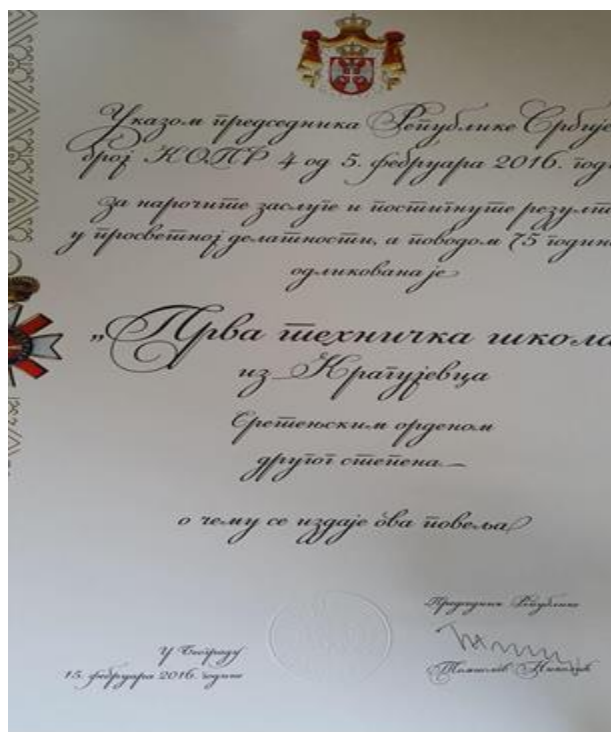 Указом председника Републике Србије
број КОПР 4 од 5. фебруара 2016. год
за нарочите заслуге и постигнуте резулт
у просветној делатности, а поводом 75 година
одликована је
„Прва техничка школа
из Крагујевца
Сретењским орденом
другог степена
о чему се издаје ова повеља
Председник Републике
У Београду
15. фебруара 2016. године
Томислав Николић